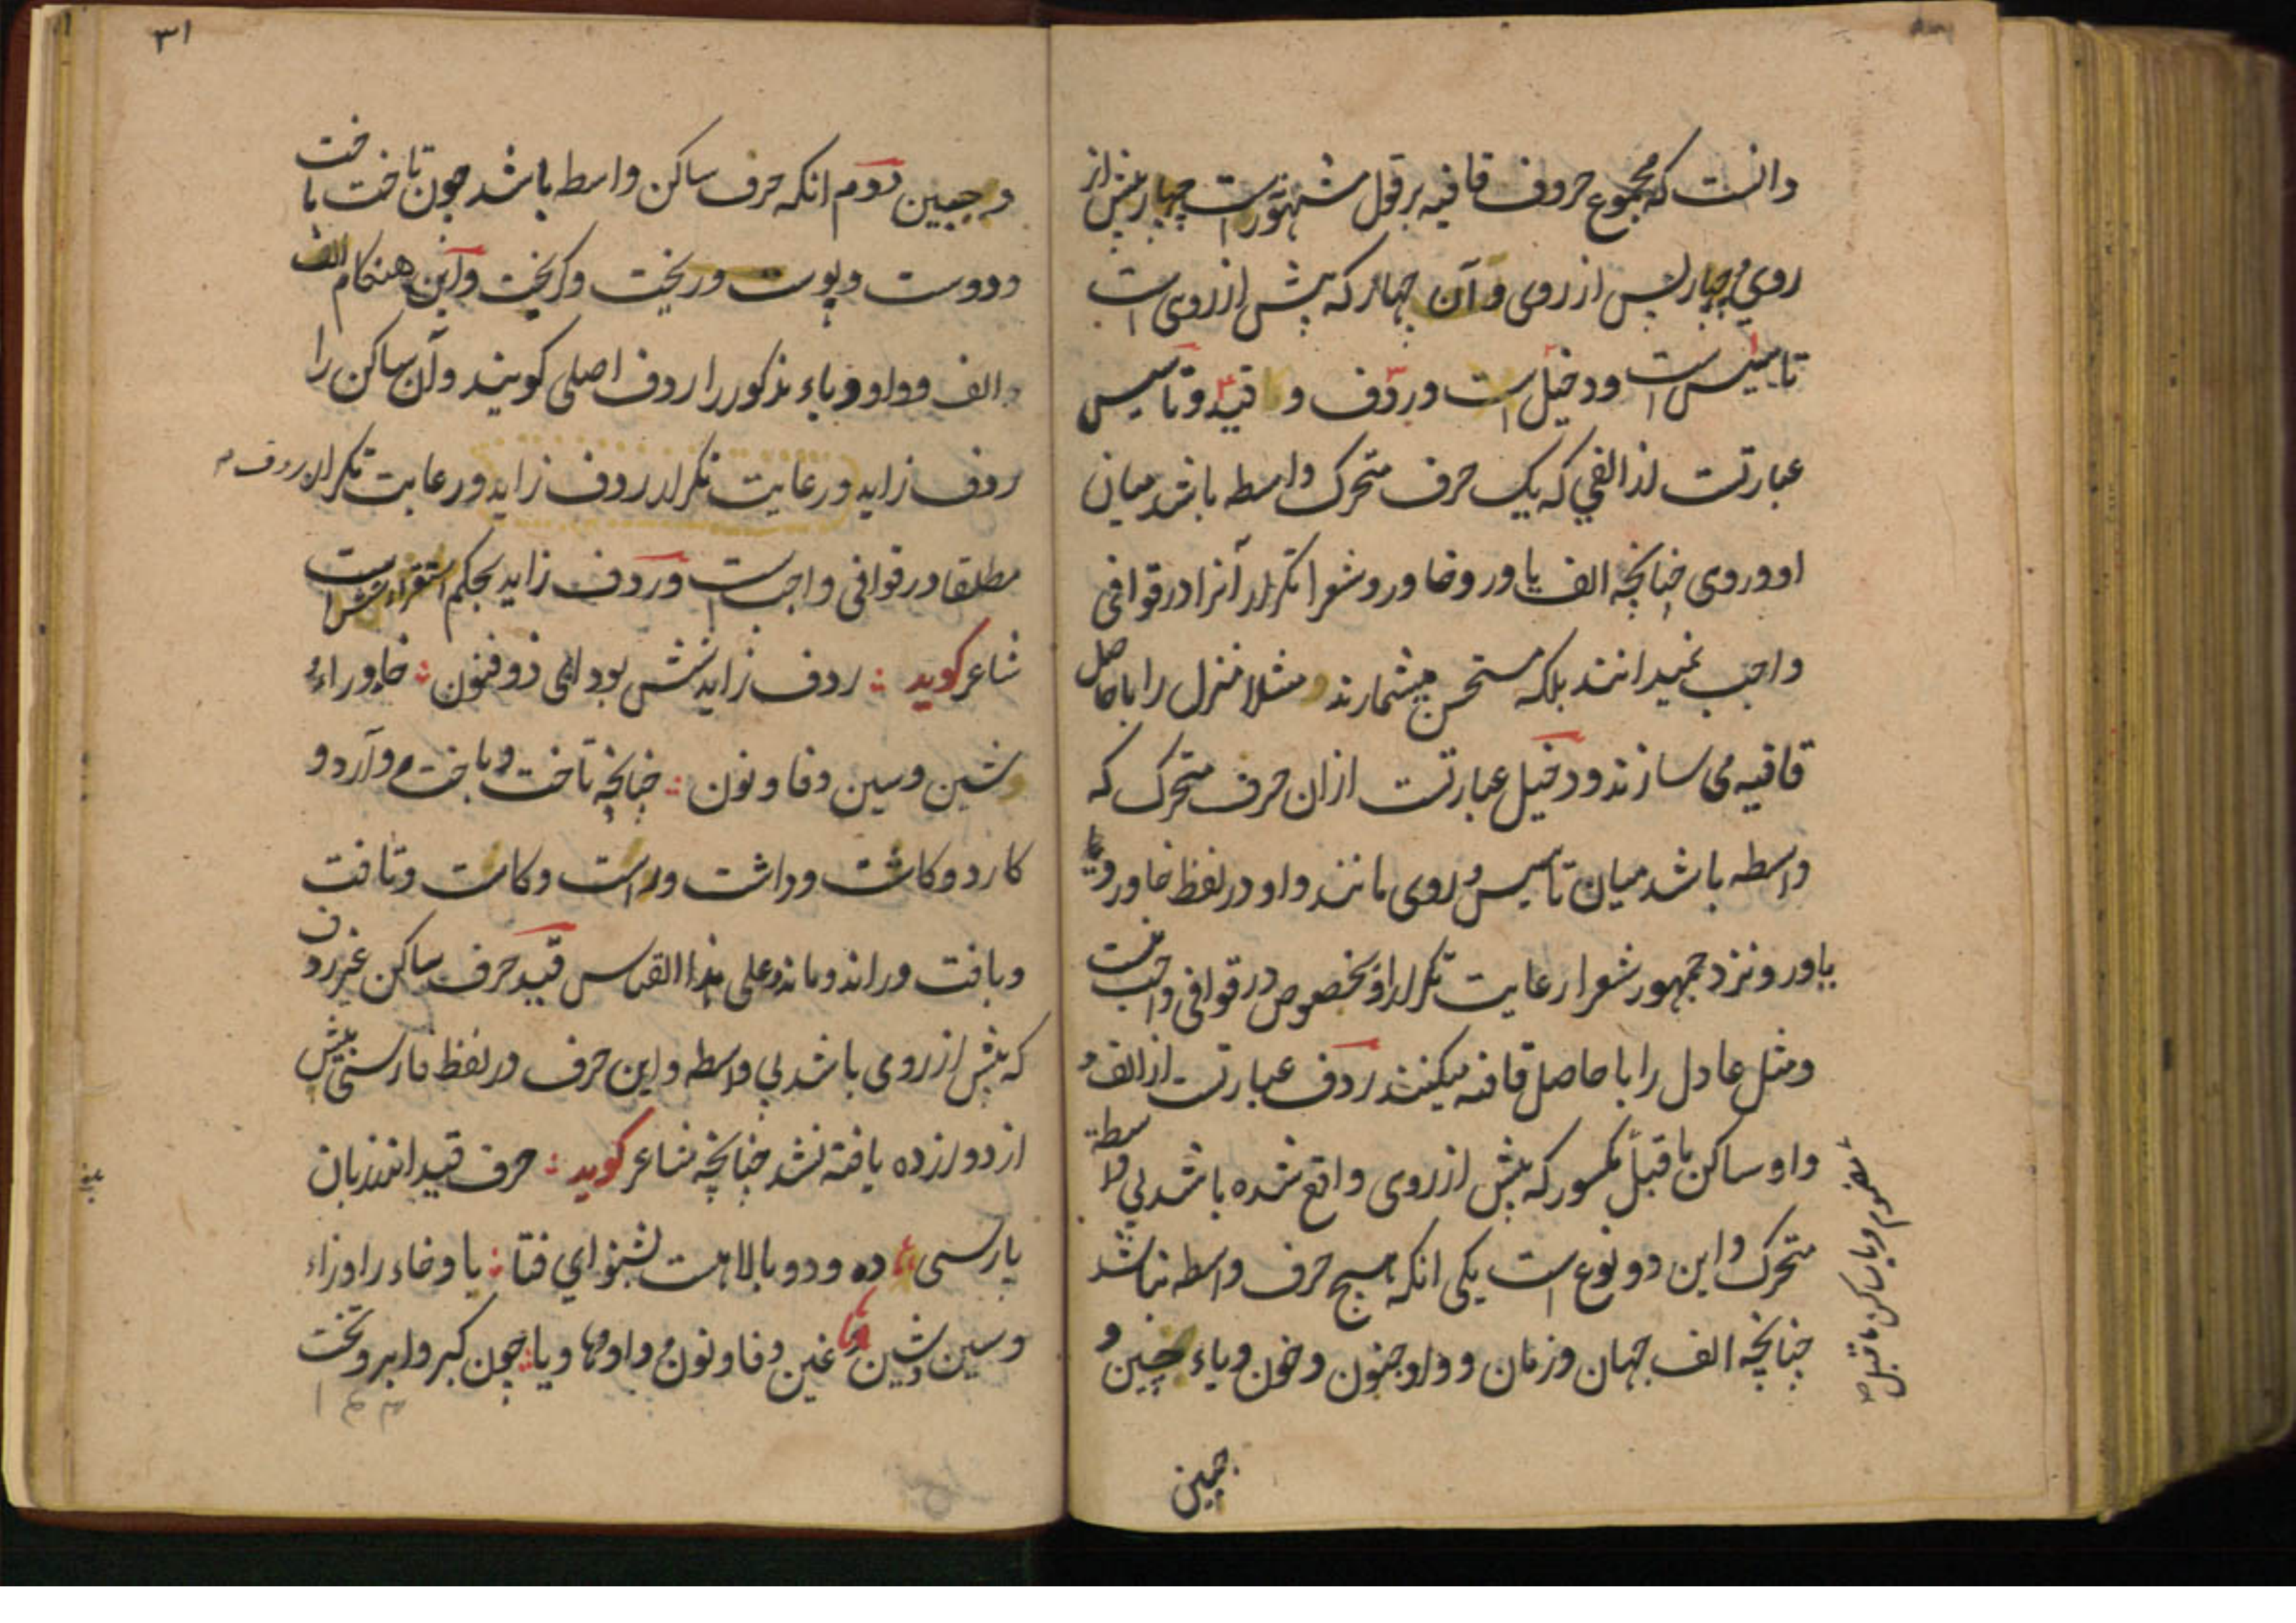 دانست که مجموع حروف قافیه بر قول مشهور است چهار پیش از
روی و چهار پس از روی و آن چهار که پیش از روی است
تاسیس است و دخیل است و ردف و قید و تاسیس
عبارتست از الفی که یک حرف متحرک واسطه باشد میان
او و روی چنانچه الف یاور و خاور و شعرا تکرار آنرا در قوافی
واجب نمیدانند بلکه مستحسن میشمارند مثلا منزل را با حاصل
قافیه می سازند و دخیل عبارتست ازان حرف متحرک که
واسطه باشد میان تاسیس و روی مانند واو در لفظ خاور و
یاور و نزد جمهور شعرا رعایت تکرار او بخصوص در قوافی واجب نیست
و مثل عادل را با حاصل قافیه میکنند ردف عبارتست از الف و
واو ساکن ما قبل مکسور که پیش از روی واقع شده باشد بی واسطهٔ
متحرک و این دو نوع است یکی انکه هیچ حرف واسطه نباشد
چنانچه الف جهان و زمان و واو جنون و خون و یاء چنین و
مضموم و یا ساکن ما قبل
جبین
۳۱
و جبین دوم انکه حرف ساکن واسطه باشد چون تاخت باخت
و دوست و پوست و ریخت و کریخت و این هنکام الف
و الف و واو و یاء مذکور را ردف اصلی کویند و آن ساکن را
ردف زاید و رعایت تکرار ردف زاید و رعایت تکرار ردف
مطلقا در قوافی واجب است و ردف زاید بحکم استقراء شش است
شاعر کوید ردف زاید شش بود ای ذو فنون خا و راء
و شین و سین و فا و نون چنانچه تاخت و باخت و آرد و
کارد و کاشت و داشت و راست و کاست و تافت
و بافت و راند و ماند و علی هذا القیاس قید حرف ساکن غیر ردف
که پیش از روی باشد بی واسطه و این حرف در لفظ فارسی پیش
از دوازده یافته نشد چنانچه شاعر کوید حرف قید اندر زبان
پارسی ده و دو بالاهست بشنو ای فتا با و خاء را و زاء
و سین و شین غین و فا و نون و واو و ها و یا چون کبر و ابر و تخت